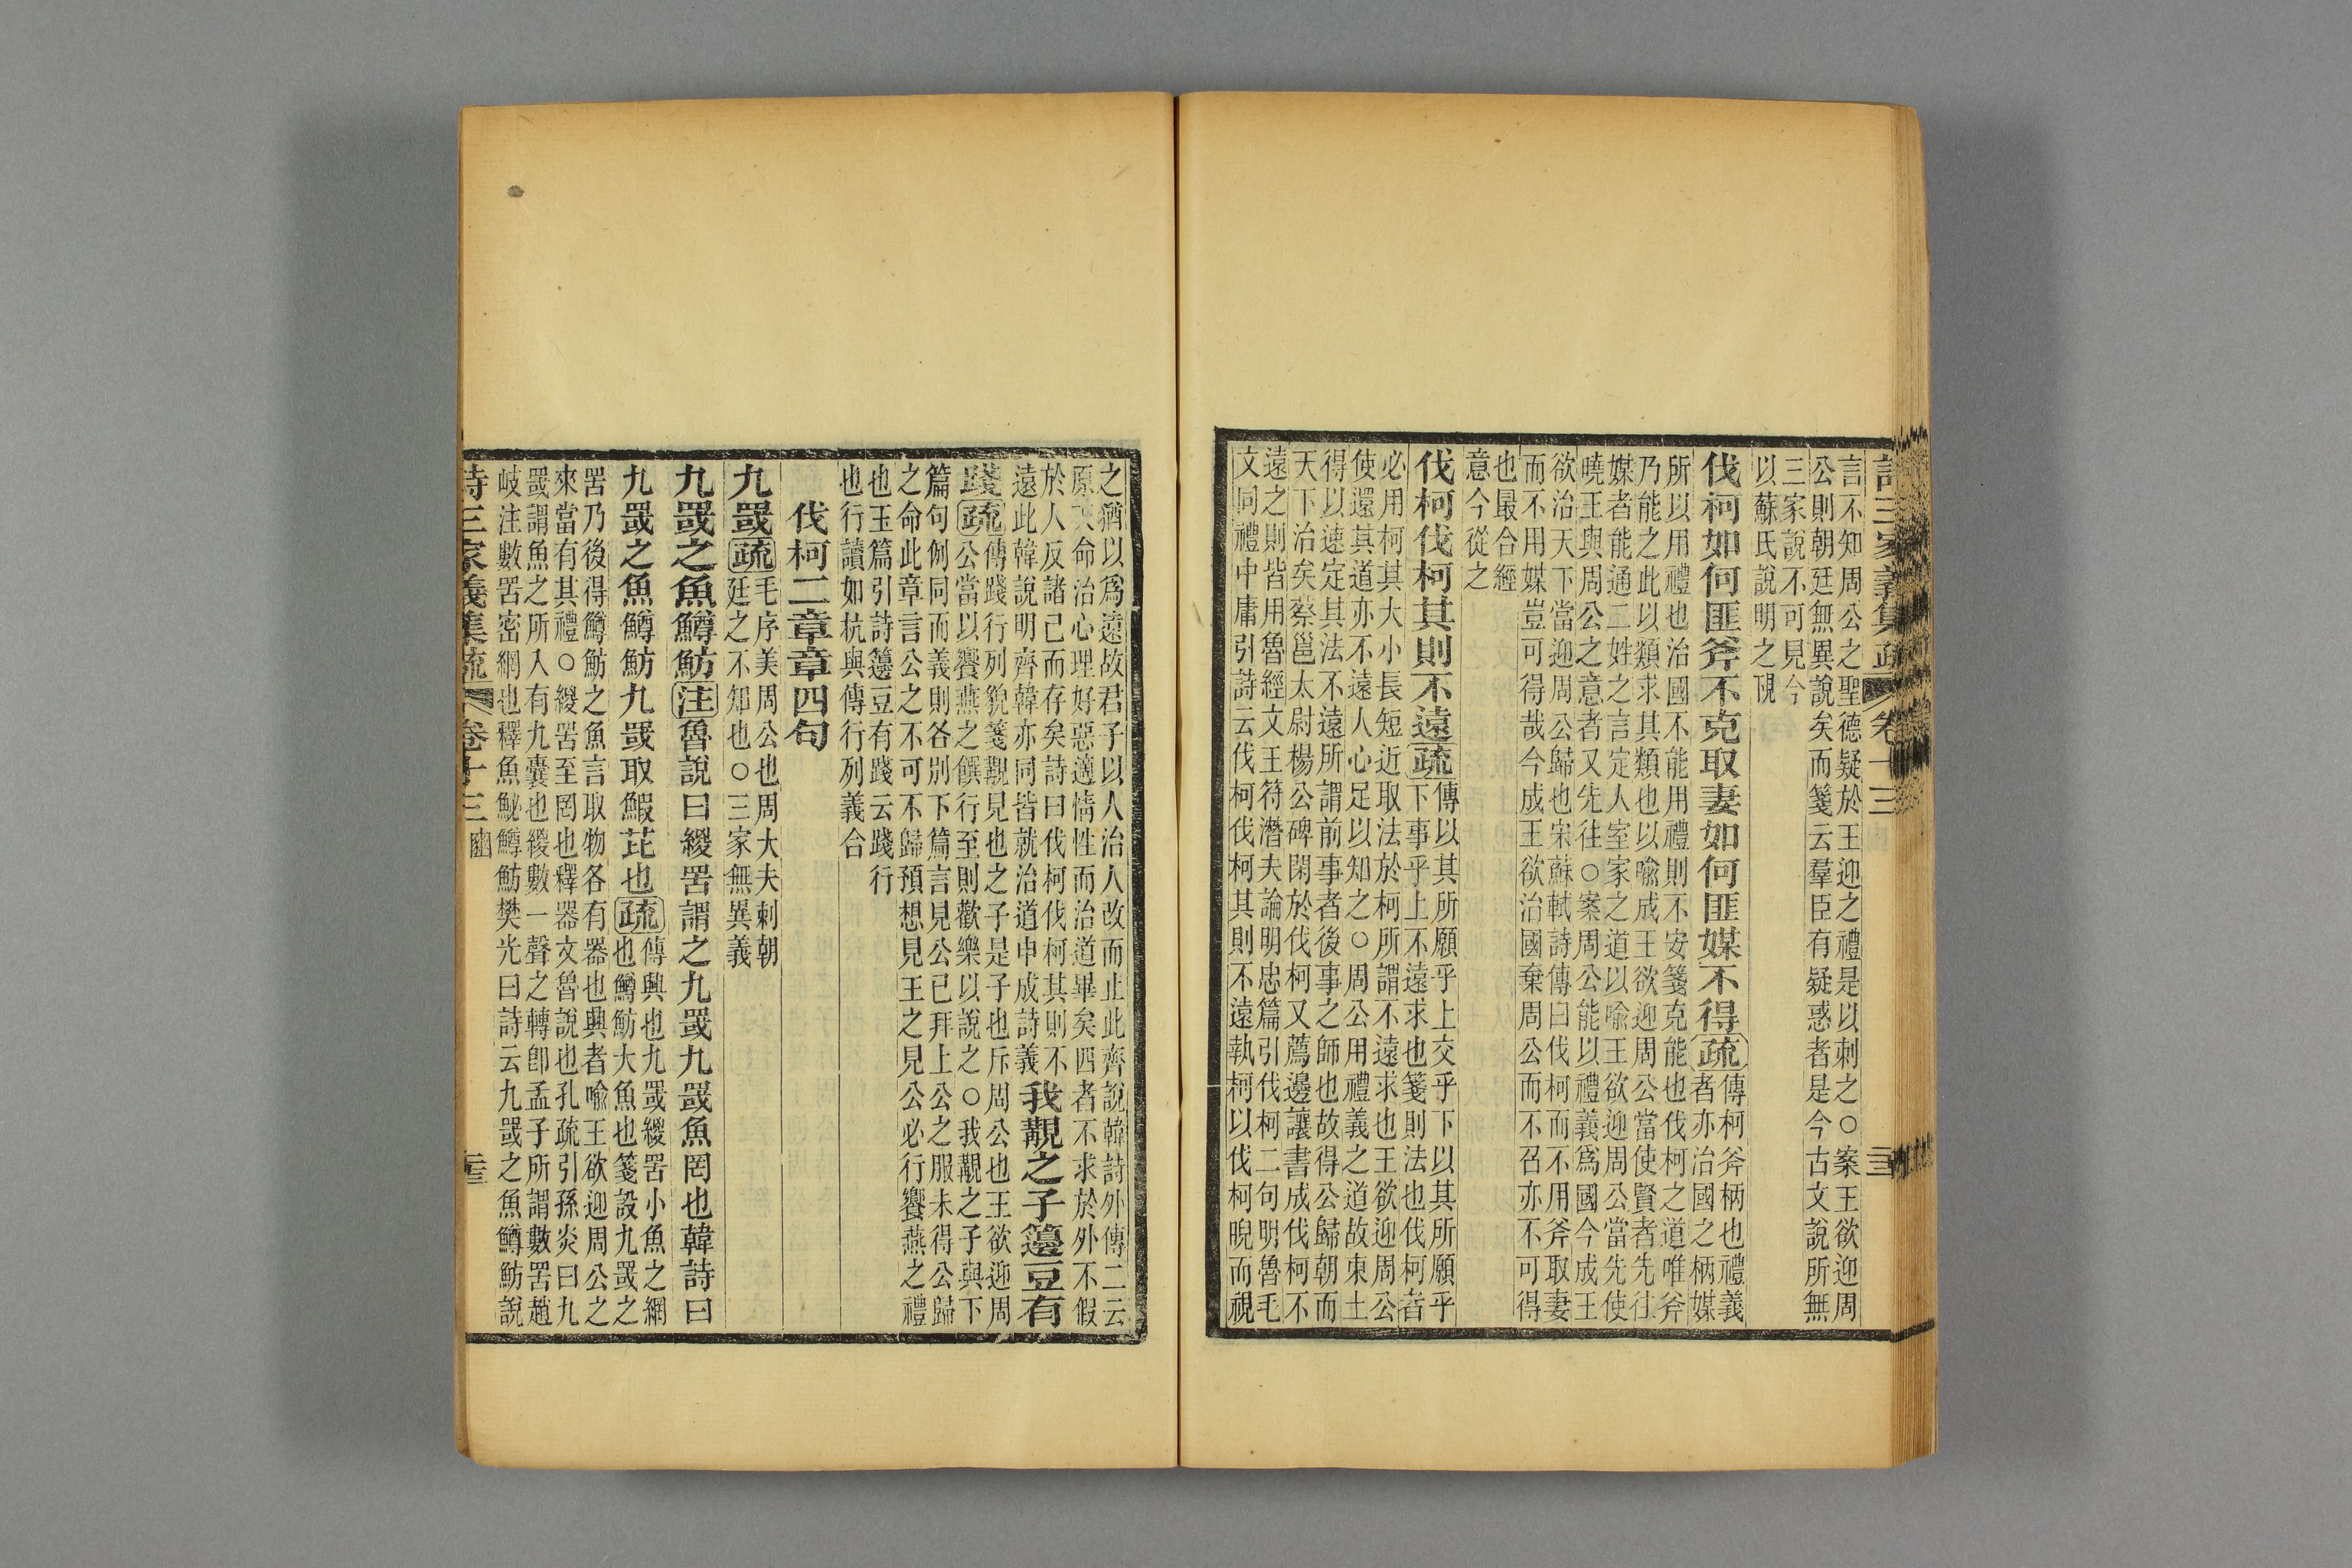 詩三家義集疏 卷十三
言不知周公之聖德疑於王迎之禮是以刺之○案王欲迎周
公則朝廷無異說矣而箋云羣臣有疑惑者是今古文說所無
三家說不可見今
以蘇氏說明之覗
伐柯如何匪斧不克取妻如何匪媒不得疏傳柯斧柄也禮義
者亦治國之柄媒
所以用禮也治國不能用禮則不安箋克能也伐柯之道唯斧
乃能之此以類求其類也以喻成王欲迎周公當使賢者先往
媒者能通二姓之言定人室家之道以喻王欲迎周公當先使
曉王與周公之意者又先往○案周公能以禮義爲國今成王
欲治天下當迎周公歸也宋蘇軾詩傳曰伐柯而不用斧取妻
而不用媒豈可得哉今成王欲治國棄周公而不召亦不可得
也最合經
意今從之
伐柯伐柯其則不遠疏傳以其所願乎上交乎下以其所願乎
下事乎上不遠求也箋則法也伐柯者
必用柯其大小長短近取法於柯所謂不遠求也王欲迎周公
使還其道亦不遠人心足以知之○周公用禮義之道故東土
得以速定其法不遠所謂前事者後事之師也故得公歸朝而
天下治矣蔡邕太尉楊公碑閑於伐柯又薦邊讓書成伐柯不
遠之則皆用魯經文王符潛夫論明忠篇引伐柯二句明魯毛
文同禮中庸引詩云伐柯伐柯其則不遠執柯以伐柯睨而視
之猶以爲遠故君子以人治人改而止此齊說韓詩外傳二云
原天命治心理好惡適情性而治道畢矣四者不求於外不假
於人反諸己而存矣詩曰伐柯伐柯其則不
遠此韓說明齊韓亦同皆就治道申成詩義我覯之子籩豆有
踐疏傳踐行列貌箋覯見也之子是子也斥周公也王欲迎周
公當以饗燕之饌行至則歡樂以說之○我覯之子與下
篇句例同而義則各別下篇言見公已拜上公之服未得公歸
之命此章言公之不可不歸預想見王之見公必行饗燕之禮
也玉篇引詩籩豆有踐云踐行
也行讀如杭與傳行列義合
伐柯二章章四句
九罭疏毛序美周公也周大夫刺朝
廷之不知也○三家無異義
九罭之魚鱒魴注魯說曰緵罟謂之九罭九罭魚罔也韓詩曰
九罭之魚鱒魴九罭取鰕芘也疏傳興也九罭緵罟小魚之網
也鱒魴大魚也箋設九罭之
罟乃後得鱒魴之魚言取物各有器也興者喻王欲迎周公之
來當有其禮○緵罟至罔也釋器文魯說也孔疏引孫炎曰九
罭謂魚之所入有九囊也緵數一聲之轉卽孟子所謂數罟趙
岐注數罟密網也釋魚鮅鱒魴樊光曰詩云九罭之魚鱒魴說
詩三家義集疏 卷十三 豳